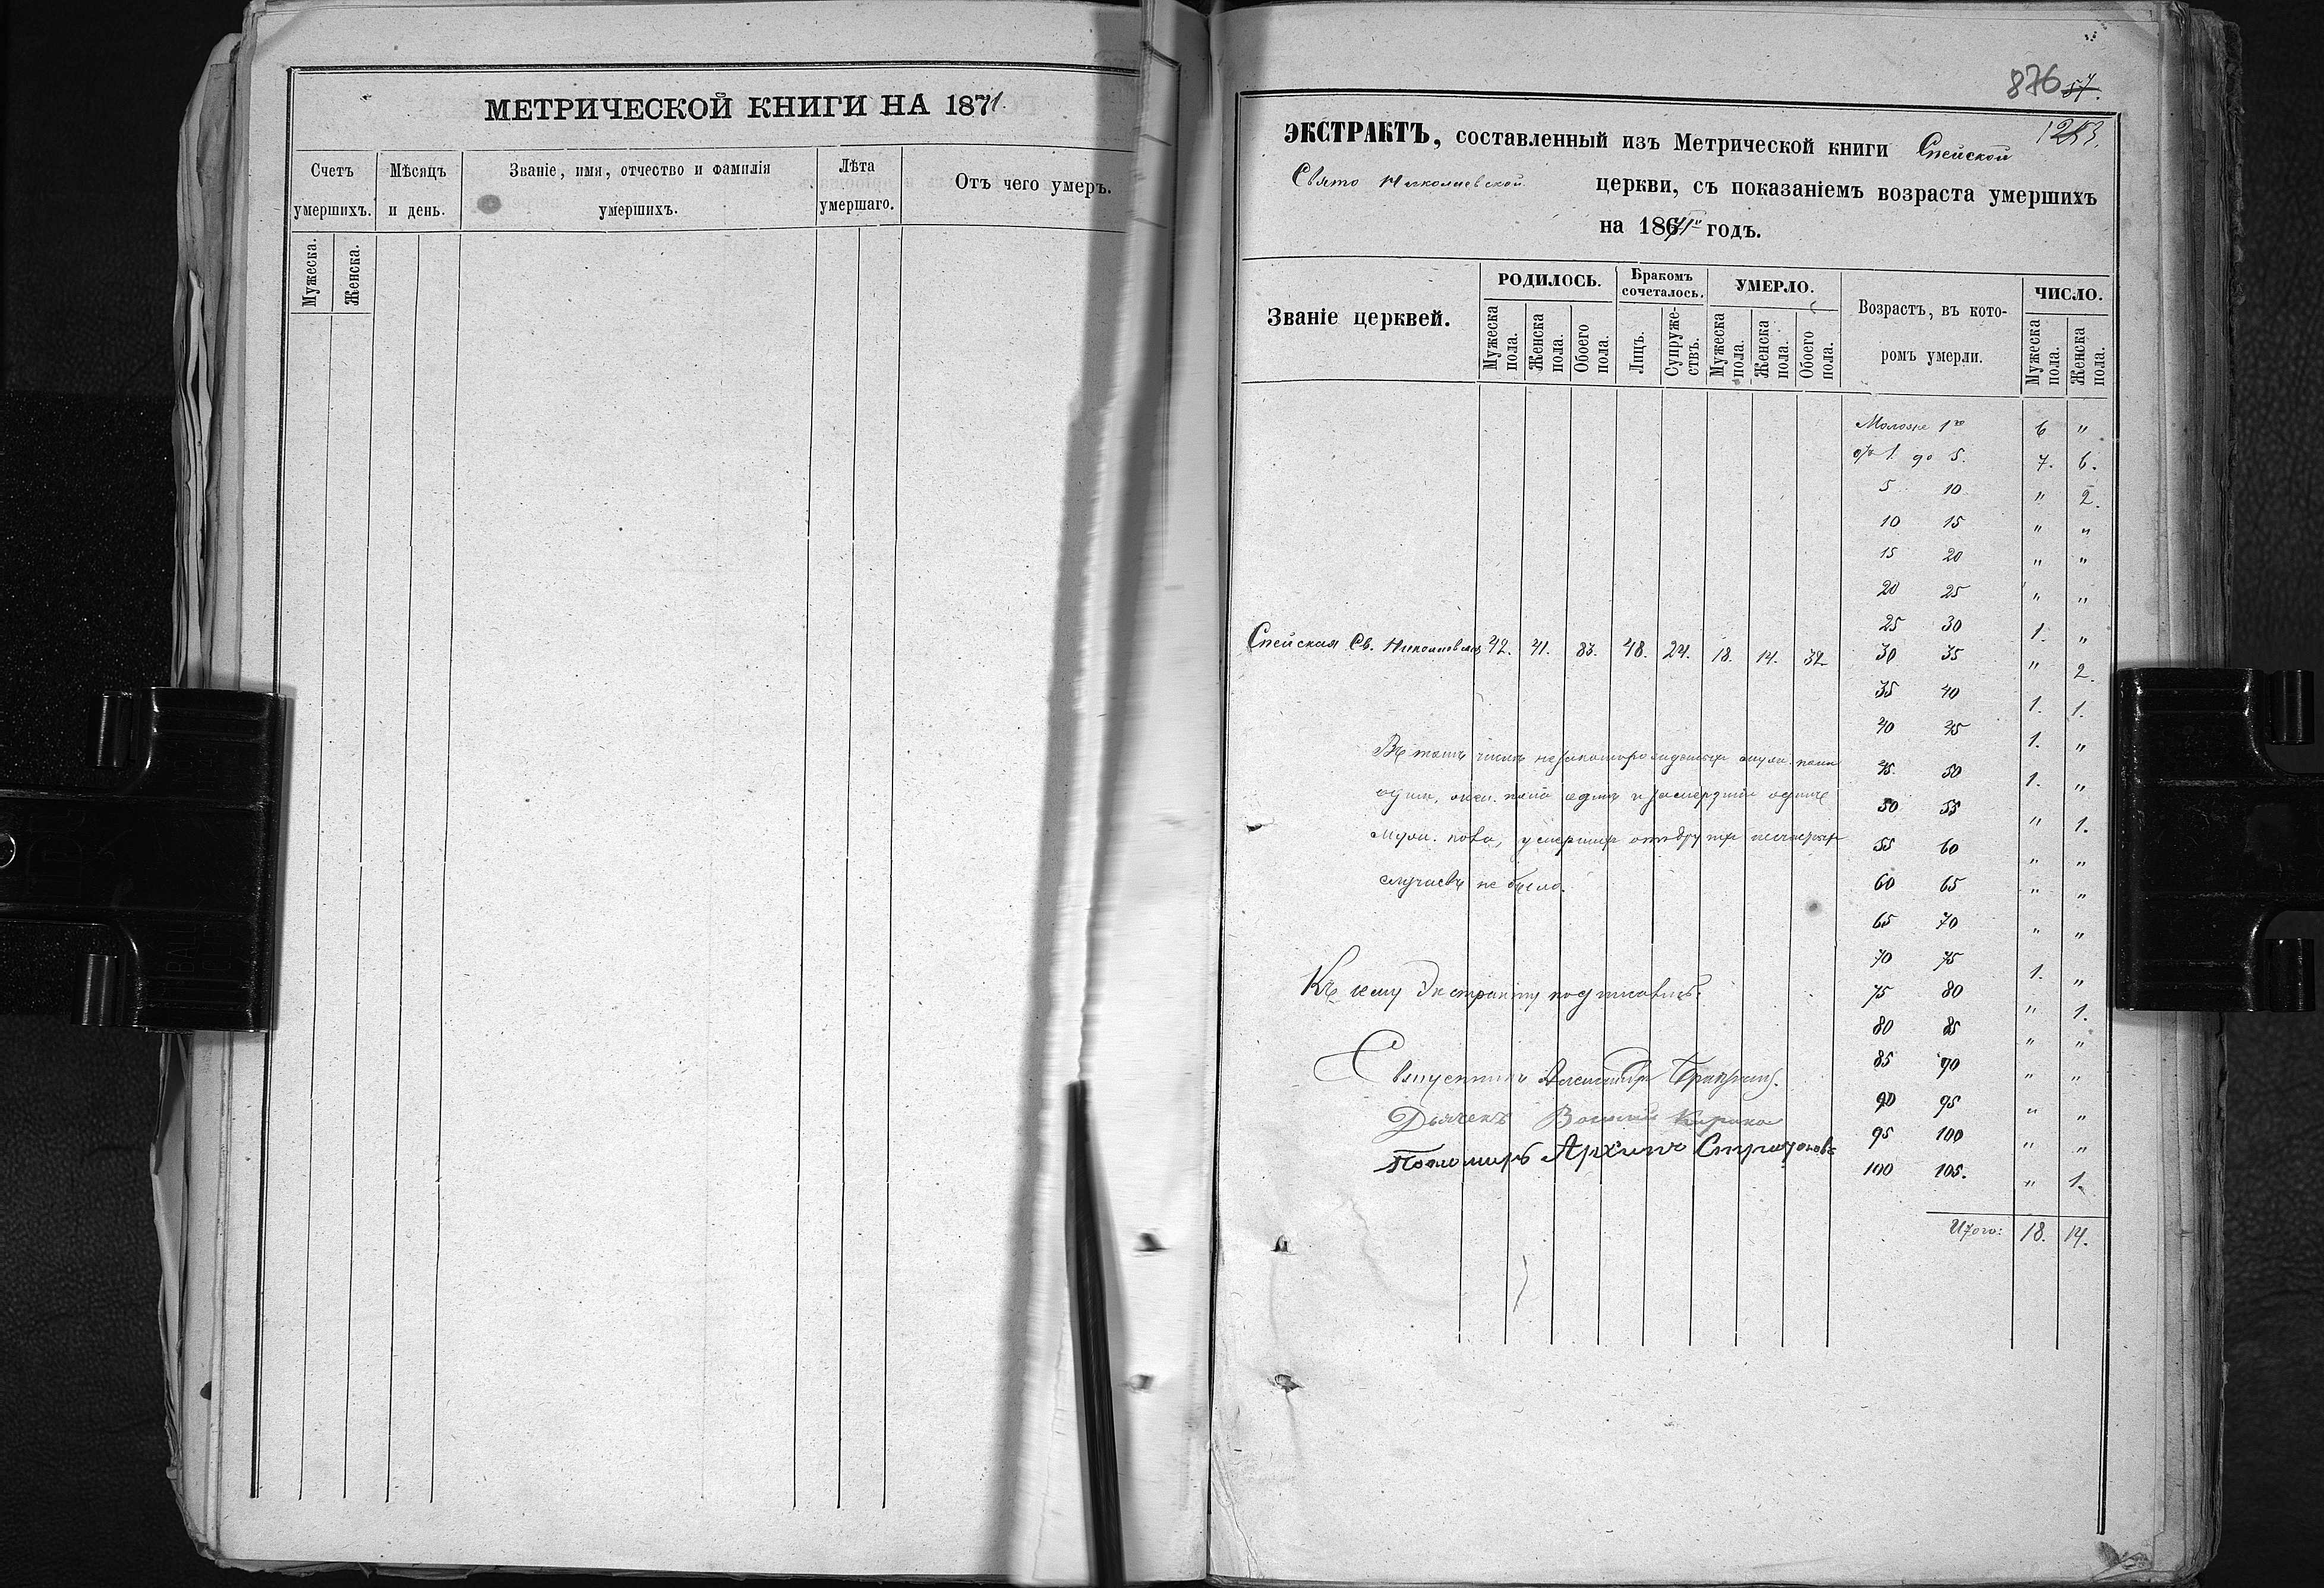 МЕТРИЧЕСКОЙ КНИГИ НА 1871.
Счетъ умершихъ.
Мужеска.
Женска.
Мѣсяцъ и день.
Званіе, имя, отчество и фамилія умершихъ.
Лѣта умершаго.
Отъ чего умеръ.
876 57.
1253.
ЭКСТРАКТЪ, составленный изъ Метрической книги Спейской
Свято Николаевской церкви, съ показаніемъ возраста умершихъ
на 1871й годъ.
Званіе церквей.
РОДИЛОСЬ.
Мужеска пола.
Женска пола.
Обоего пола.
Бракомъ сочеталось.
Лицъ.
Супружествъ.
УМЕРЛО.
Мужеска пола.
Женска пола.
Обоего пола.
Возрастъ, въ которомъ умерли.
ЧИСЛО.
Мужеска пола.
Женска пола.
Моложе 1го 6 "
отъ 1. до 5. 7. 6.
5 10 " 2.
10 15 " "
15 20 " "
20 25 " "
25 30 1. "
Спейская Св. Николаевская 42. 41. 83. 48. 24. 18. 14. 32
30 35 " 2.
35 40 1. 1.
40 45 1. "
45 50 1. "
50 55 " 1.
55 60 " "
60 65 " "
65 70 " "
70 75 1. "
75 80 " 1.
80 85 " "
85 90 " "
90 95 " "
95 100 " "
100 105. " 1.
Итого: 18. 14.
Въ томъ числѣ незаконнорожденныхъ муж. пола
один, жен. пола един и
муж. пола, умершихъ отъ других несчастных
случаевъ не было.
Къ сему Экстракту подписались:
Священникъ Александръ
Дьячекъ Василій
Пономарь Архипъ